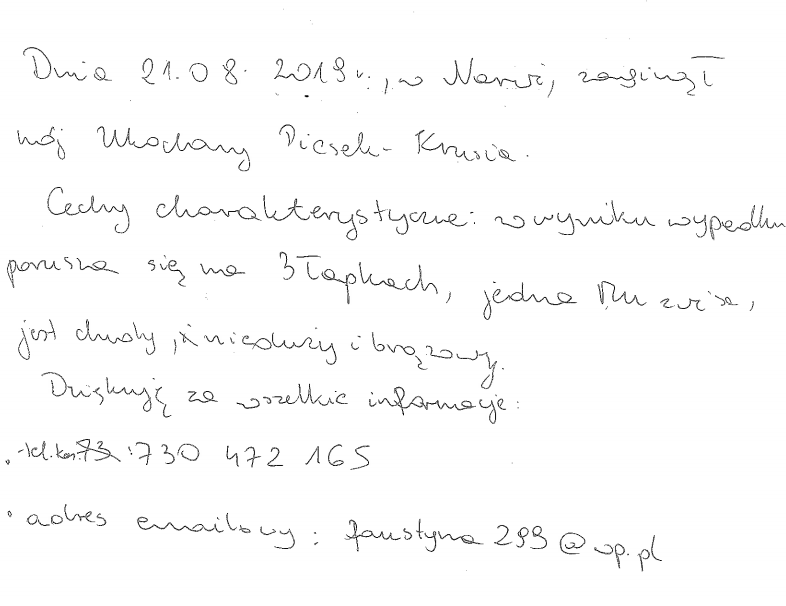 Dnia 21.08.2019 r., w Narwi, zaginął
mój Ukochany Piesek - Krusia.
Cechy charakterystyczne: w wyniku wypadku
porusza się na 3 łapkach, jedna Mu zwisa,
jest chudy, nieduży i brązowy.
Dziękuję za wszelkie informacje:
. tel. kom. 73 : 730 472 165
• adres emailowy : faustyna299@wp.pl